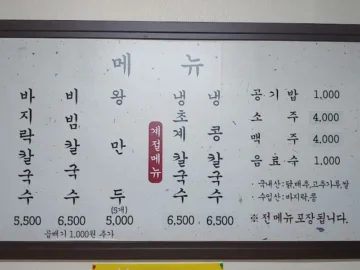 메 뉴
바지락칼국수 5,500
비빔칼국수 6,500
왕만두 (5개) 5,000
계절메뉴
냉초계칼국수 6,500
냉콩칼국수 6,500
곱배기 1,000원 추가
공 기 밥 1,000
소 주 4,000
맥 주 4,000
음 료 수 1,000
· 국내산:닭,배추,고추가루,쌀
· 수입산:바지락,콩
※ 전메뉴 포장 됩니다.